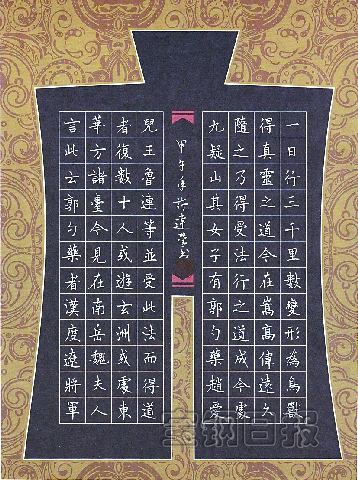 一日行三千里數變形為鳥獸
得真靈之道今在嵩高偉遠久
隨之乃得受法行之道成今處
九疑山其女子有郭勺藥趙愛
甲午年
兒王魯連等並受此法而得道
者復數十人或遊玄洲或處東
華方諸臺今見在南岳魏夫人
言此云郭勺藥者漢度遼將軍
宝钢日报